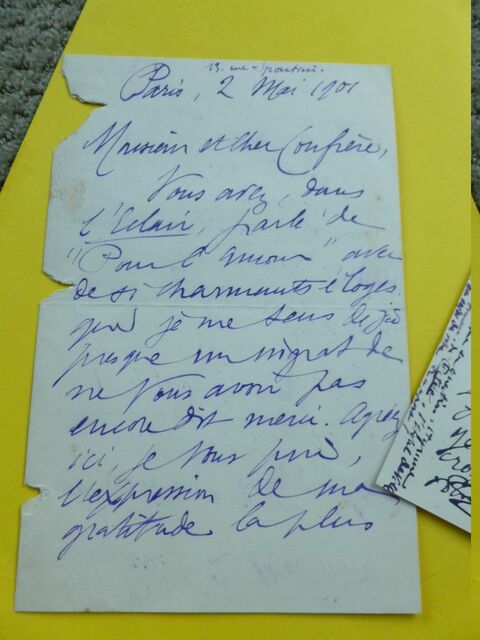 13. rue
Paris, 2 Mai 1901
Monsieur et Cher Confrère,
Vous avez, dans
l'Eclair, parlé de
"Pour l'amour" avec
de si charmants éloges
que je me sens déjà
presque un ingrat de
ne vous avoir pas
encore dit merci. Agréez
ici, je vous prie,
l'expression de ma
gratitude la plus